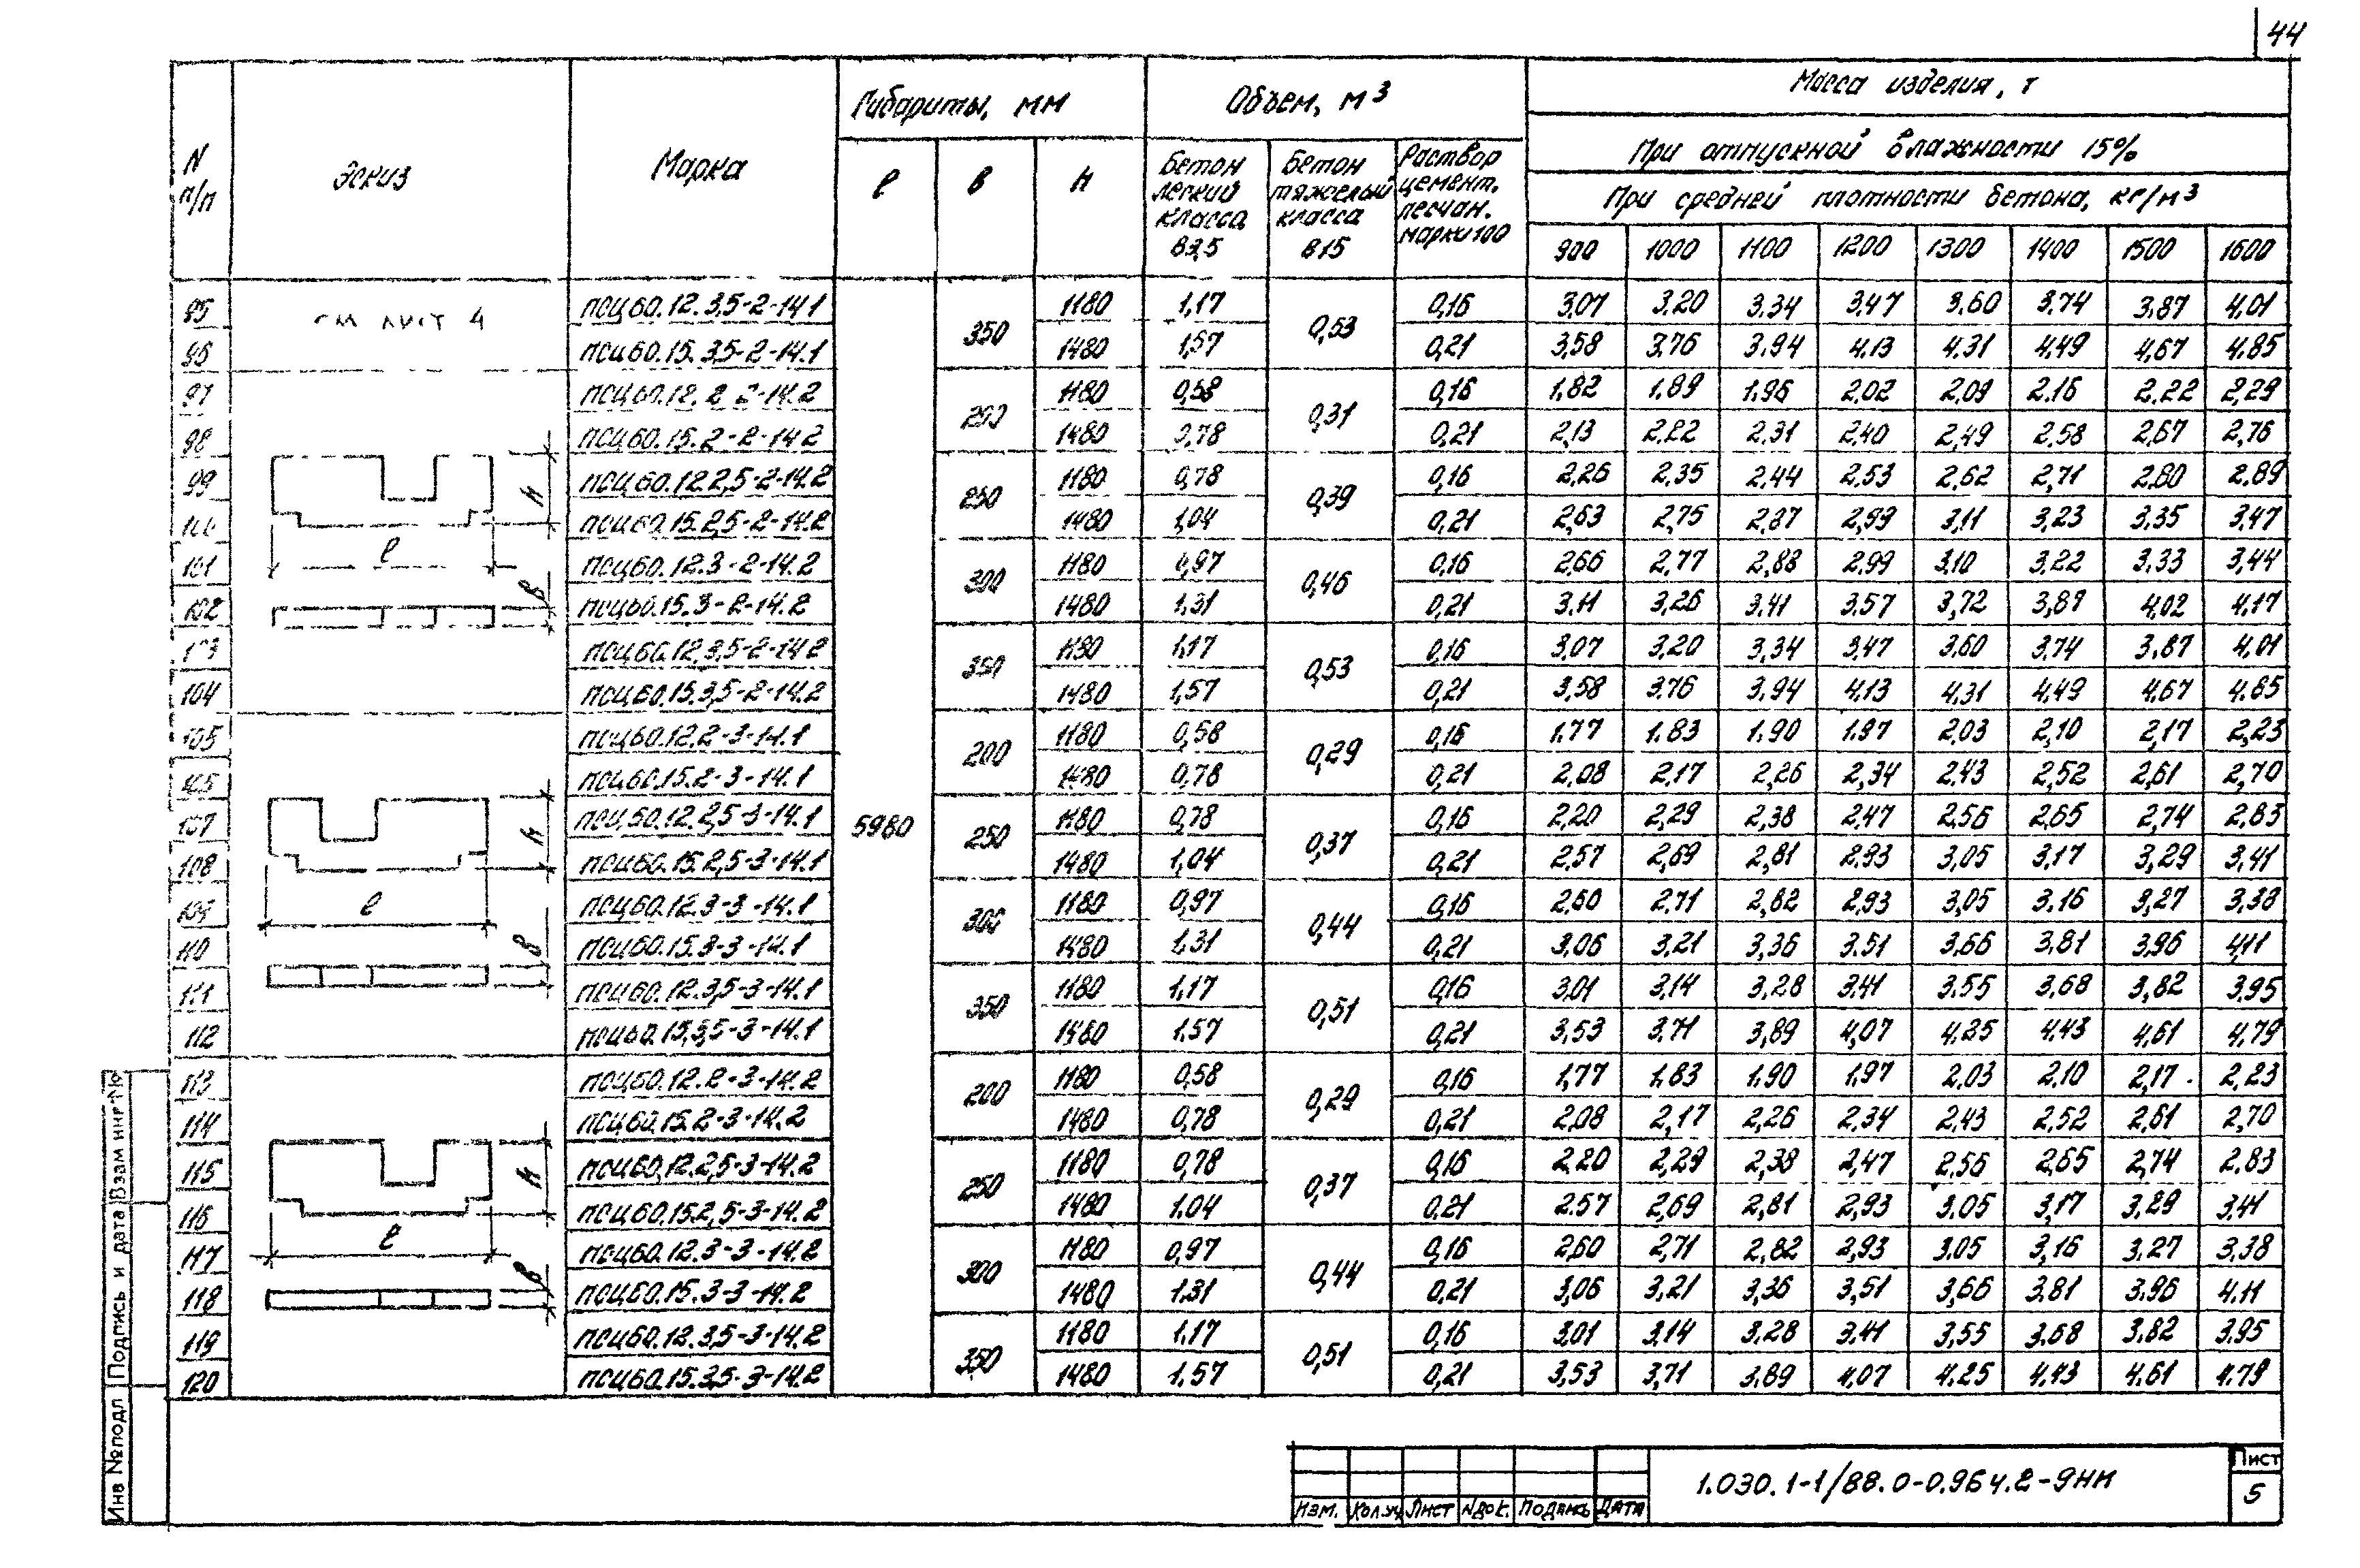 44
N п/п Эскиз Марка Габариты, мм Объем, м3 Масса изделия, т
При отпускной влажности 15%
При средней плотности бетона, кг/м3
ℓ в H Бетон легкий класса В3,5 Бетон тяжелый класса В15 Раствор цемент. песчан. марки 100 900 1000 1100 1200 1300 1400 1500 1600
95 см лист 4 ПСЦ60.12.3,5-2-14.1 350 1180 1,17 0,53 0,16 3,07 3,20 3,34 3,47 3,60 3,74 3,87 4,01
96 ПСЦ60.15.3,5-2-14.1 1480 1,57 0,21 3,58 3,76 3,94 4,13 4,31 4,49 4,67 4,85
97 ПСЦ60.12.2-2-14.2 200 1180 0,58 0,31 0,16 1,82 1,89 1,96 2,02 2,09 2,16 2,22 2,29
98 ПСЦ60.15.2-2-14.2 1480 0,78 0,21 2,13 2,22 2,31 2,40 2,49 2,58 2,67 2,76
99 ПСЦ60.12.2,5-2-14.2 250 1180 0,78 0,39 0,16 2,26 2,35 2,44 2,53 2,62 2,71 2,80 2,89
100 ПСЦ60.15.2,5-2-14.2 1480 1,04 0,21 2,63 2,75 2,87 2,99 3,11 3,23 3,35 3,47
101 ПСЦ60.12.3-2-14.2 300 1180 0,97 0,46 0,16 2,66 2,77 2,88 2,99 3,10 3,22 3,33 3,44
102 ПСЦ60.15.3-2-14.2 1480 1,31 0,21 3,11 3,26 3,41 3,57 3,72 3,87 4,02 4,17
103 ПСЦ60.12.3,5-2-14.2 350 1180 1,17 0,53 0,16 3,07 3,20 3,34 3,47 3,60 3,74 3,87 4,01
104 ПСЦ60.15.3,5-2-14.2 1480 1,57 0,21 3,58 3,76 3,94 4,13 4,31 4,49 4,67 4,85
105 ПСЦ60.12.2-3-14.1 200 1180 0,58 0,29 0,16 1,77 1,83 1,90 1,97 2,03 2,10 2,17 2,23
106 ПСЦ60.15.2-3-14.1 1480 0,78 0,21 2,08 2,17 2,26 2,34 2,43 2,52 2,61 2,70
107 ПСЦ60.12.2,5-3-14.1 5980 250 1180 0,78 0,37 0,16 2,20 2,29 2,38 2,47 2,56 2,65 2,74 2,83
108 ПСЦ60.15.2,5-3-14.1 1480 1,04 0,21 2,57 2,69 2,81 2,93 3,05 3,17 3,29 3,41
109 ПСЦ60.12.3-3-14.1 300 1180 0,97 0,44 0,16 2,60 2,71 2,82 2,93 3,05 3,16 3,27 3,38
110 ПСЦ60.15.3-3-14.1 1480 1,31 0,21 3,06 3,21 3,36 3,51 3,66 3,81 3,96 4,11
111 ПСЦ60.12.3,5-3-14.1 350 1180 1,17 0,51 0,16 3,01 3,14 3,28 3,41 3,55 3,68 3,82 3,95
112 ПСЦ60.15.3,5-3-14.1 1480 1,57 0,21 3,53 3,71 3,89 4,07 4,25 4,43 4,61 4,79
113 ПСЦ60.12.2-3-14.2 200 1180 0,58 0,29 0,16 1,77 1,83 1,90 1,97 2,03 2,10 2,17 2,23
114 ПСЦ60.15.2-3-14.2 1480 0,78 0,21 2,08 2,17 2,26 2,34 2,43 2,52 2,61 2,70
115 ПСЦ60.12.2,5-3-14.2 250 1180 0,78 0,37 0,16 2,20 2,29 2,38 2,47 2,56 2,65 2,74 2,83
116 ПСЦ60.15.2,5-3-14.2 1480 1,04 0,21 2,57 2,69 2,81 2,93 3,05 3,17 3,29 3,41
117 ПСЦ60.12.3-3-14.2 300 1180 0,97 0,44 0,16 2,60 2,71 2,82 2,93 3,05 3,16 3,27 3,38
118 ПСЦ60.15.3-3-14.2 1480 1,31 0,21 3,06 3,21 3,36 3,51 3,66 3,81 3,96 4,11
119 ПСЦ60.12.3,5-3-14.2 350 1180 1,17 0,51 0,16 3,01 3,14 3,28 3,41 3,55 3,68 3,82 3,95
120 ПСЦ60.15.3,5-3-14.2 1480 1,57 0,21 3,53 3,71 3,89 4,07 4,25 4,43 4,61 4,79
H
ℓ
в
H
ℓ
в
H
ℓ
в
Инв №подл Подпись и дата Взам инв №
Изм. Кол.уч Лист Nдок. Подпись Дата
1.030.1-1/88.0-0.964.2-9НИ
Лист
5